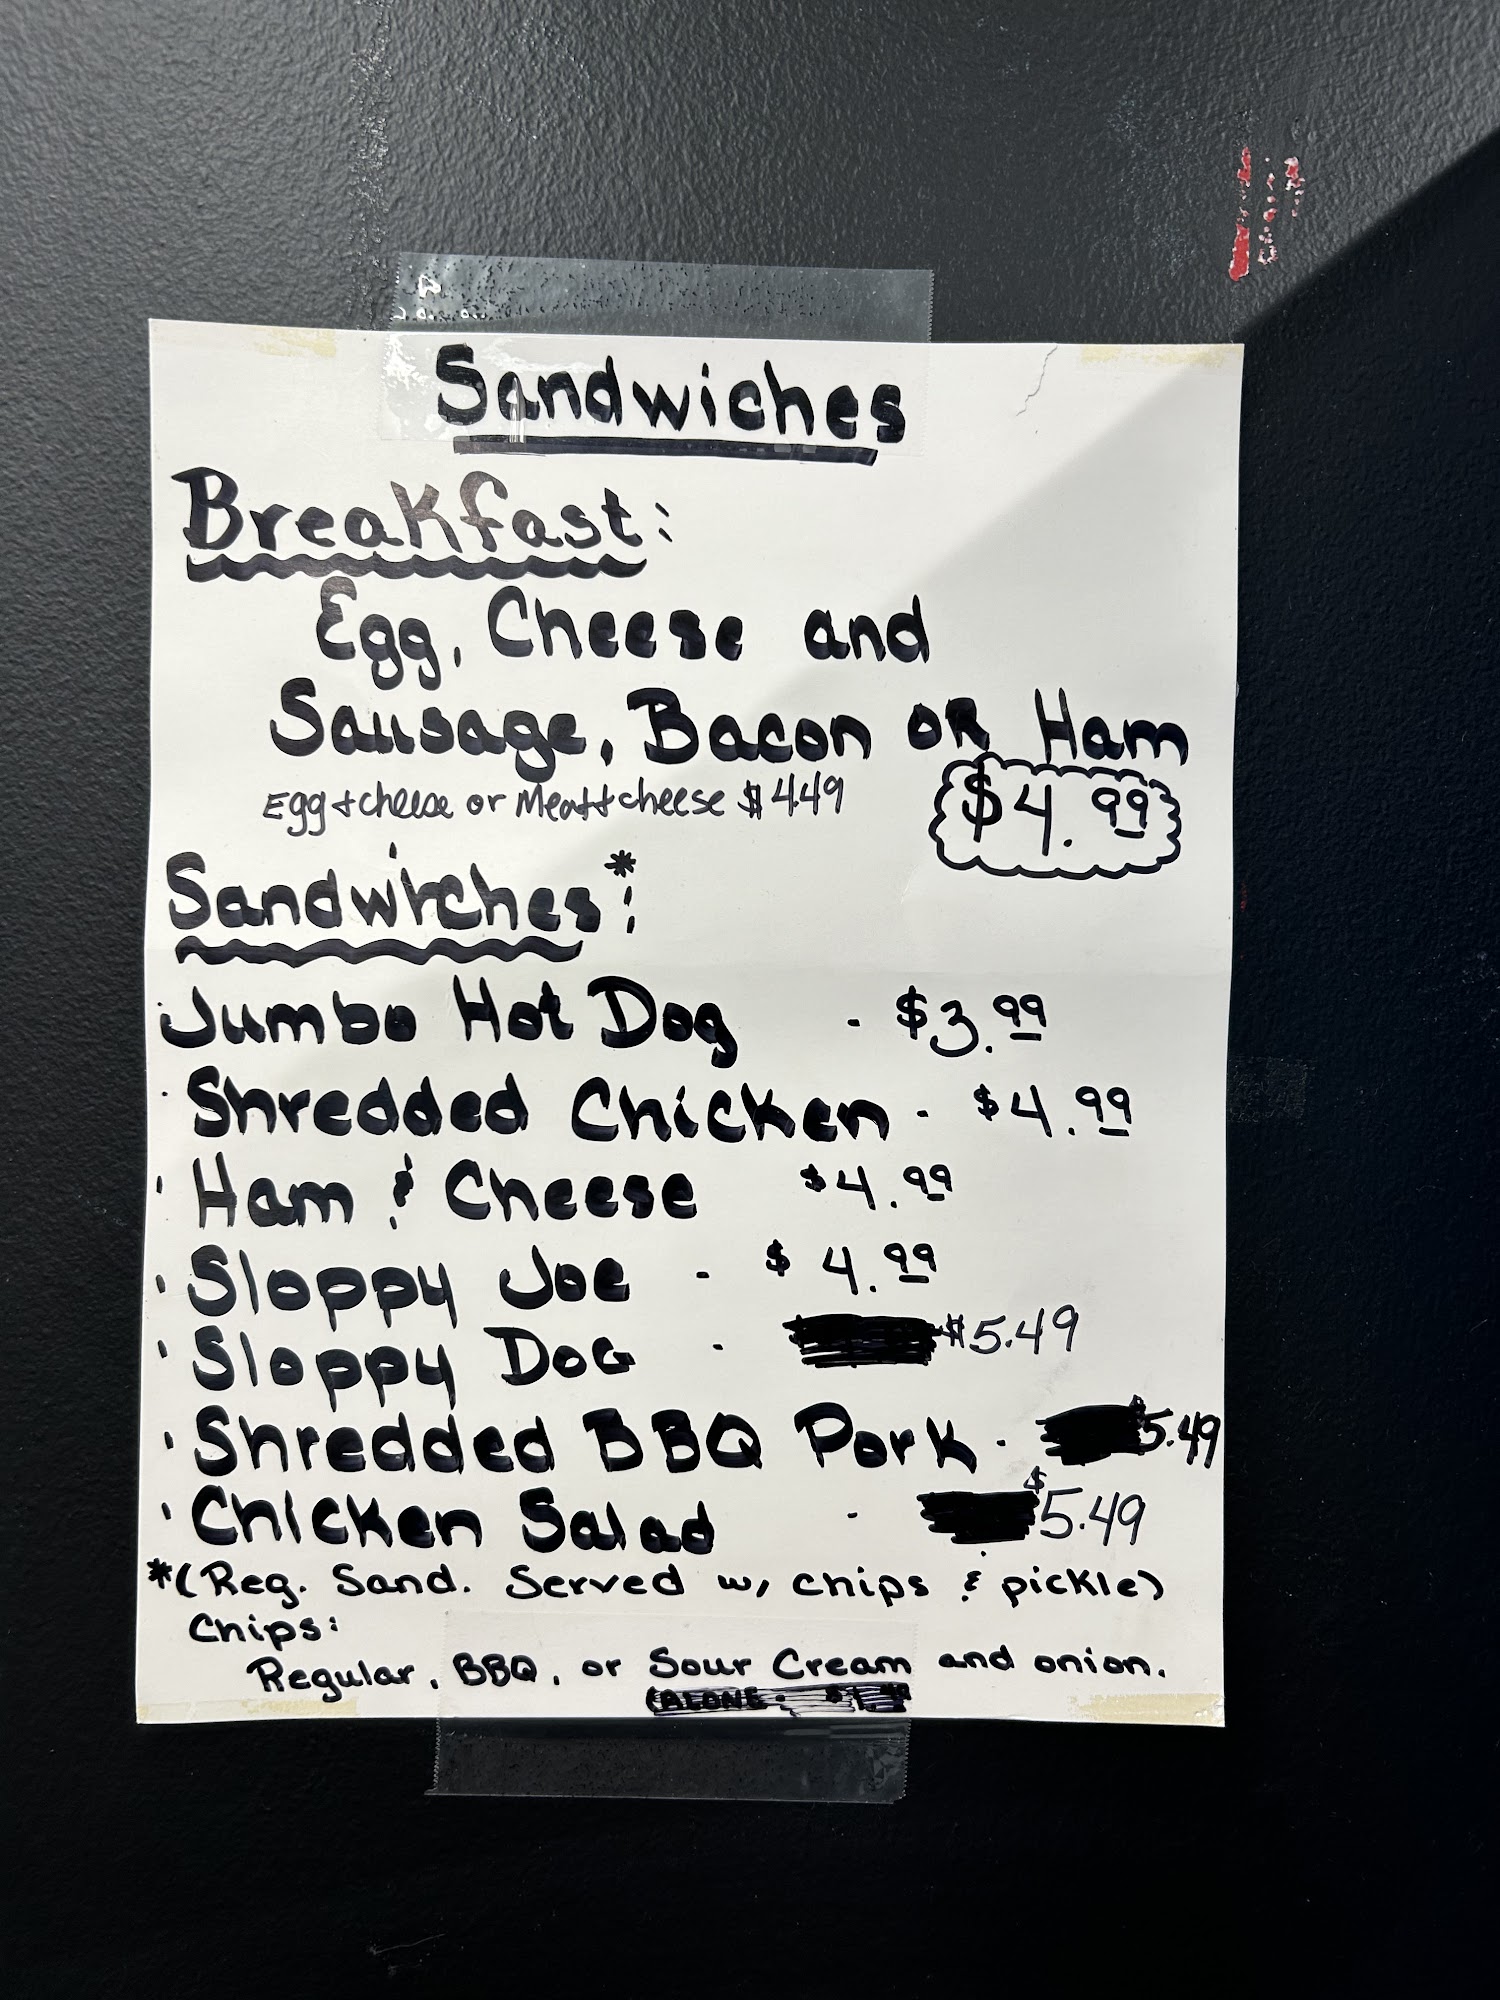 Sandwiches
Breakfast:
Egg, Cheese and
Sausage, Bacon OR Ham
Egg + cheese or Meat + cheese $4.49
$4.99
Sandwiches*:
· Jumbo Hot Dog - $3.99
· Shredded Chicken - $4.99
· Ham & Cheese $4.99
· Sloppy Joe - $4.99
· Sloppy Dog - $5.49
· Shredded BBQ Pork - $5.49
· Chicken Salad - $5.49
*(Reg. Sand. Served w/ chips & pickle)
Chips:
Regular, BBQ, or Sour Cream and onion.